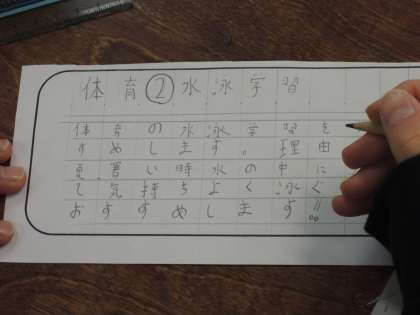 体育②水泳学習
体育の水泳学習を
すめします。理由
暑い時水の中に
て気持ちよく泳ぐ
おすすめします!!